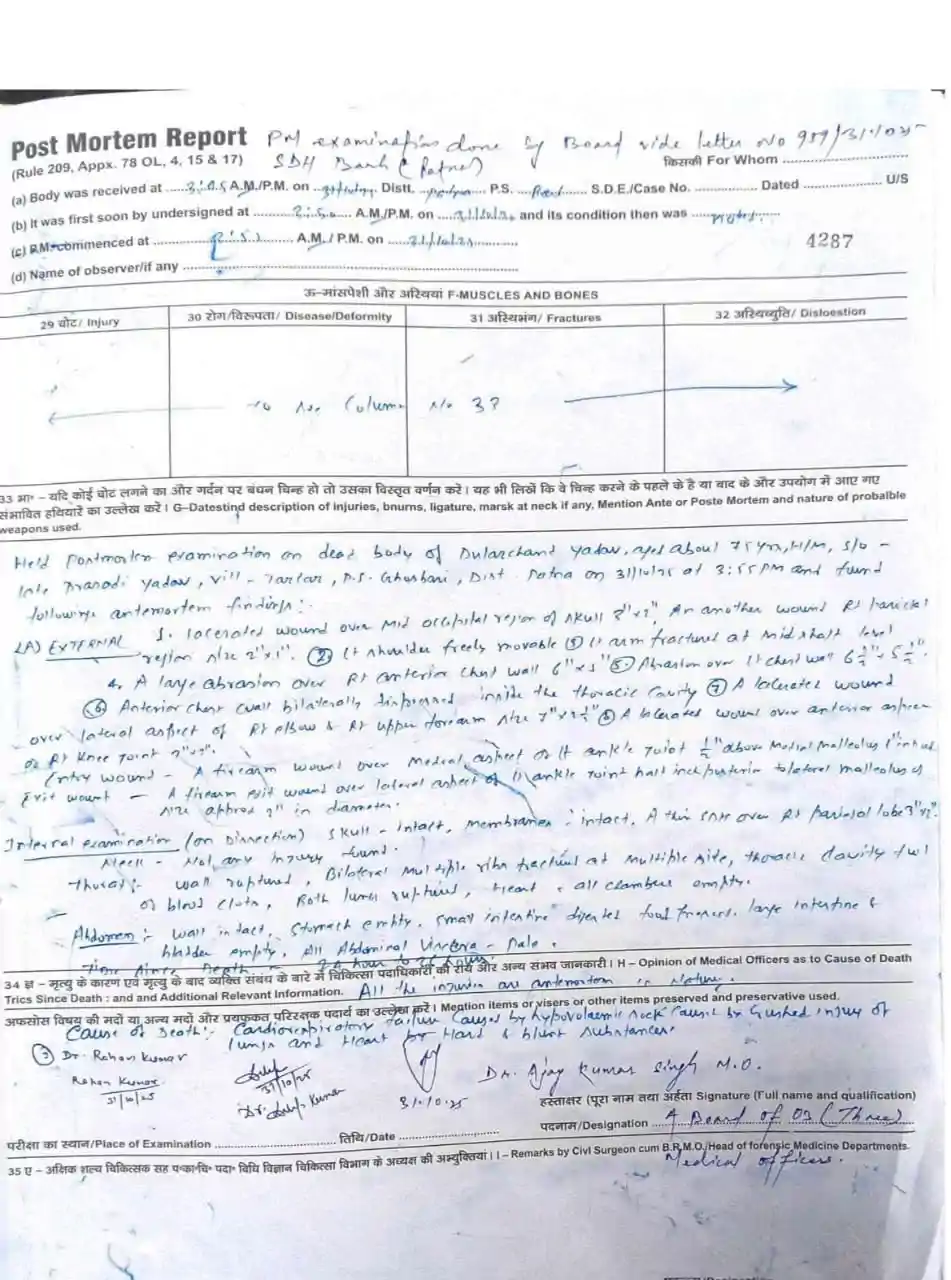 Post Mortem Report PM examination done by Board vide letter No 989/31.10.25
(Rule 209, Appx. 78 OL, 4, 15 & 17) SDH Barh (Patna) किसकी For Whom
(a) Body was received at A.M./P.M. on Distt. P.S. S.D.E./Case No. Dated U/S
(b) It was first soon by undersigned at A.M./P.M. on and its condition then was
(c) P.M. commenced at A.M. / P.M. on 4287
(d) Name of observer/if any
ऊ-मांसपेशी और अस्थियां F-MUSCLES AND BONES
29 चोट/ Injury 30 रोग/विरूपता/ Disease/Deformity 31 अस्थिभंग/ Fractures 32 अस्थिच्युति/ Disloestion
Column No 33
33 भा॰ – यदि कोई चोट लगने का और गर्दन पर बंधन चिन्ह हो तो उसका विस्तृत वर्णन करें। यह भी लिखें कि वे चिन्ह करने के पहले के है या बाद के और उपयोग में आए गए
संभावित हथियारे का उल्लेख करें। G–Datestind description of injuries, bnurns, ligature, marsk at neck if any, Mention Ante or Poste Mortem and nature of probalble
weapons used.
Held Postmortem examination on dead body of Dularchand Yadav, aged about 75 yrs, H/M, S/o -
late Yadav, Vill - Tartar, P.S. Ghoshari, Dist. Patna on 31/10/25 at 3:55 PM and found
following antemortem findings:-
(A) EXTERNAL 1. lacerated wound over Mid occipital region of skull another wound Rt parietal
region size 2"x1". (2) Lt shoulder freely movable (3) Lt arm fractured at mid shaft level
4. A large abrasion over Rt anterior chest wall (5) Abrasion over Lt chest wall
(6) Anterior chest wall bilaterally inside the thoracic cavity (7) A lacerated wound
over lateral aspect of Rt elbow & Rt upper forearm size (8) A lacerated wound over anterior aspect
of Rt Knee joint
Entry wound - A firearm wound over Medial aspect of Lt ankle joint ½" above Medial malleolus
Exit wound - A firearm exit wound over lateral aspect of ankle joint half inch posterior to lateral malleolus of
size approx 2" in diameter.
Internal examination (on Dissection) Skull - Intact, Membranes: intact. A thin over Rt parietal lobe
Neck - Not any Injury found.
Thorax:- wall ruptured, Bilateral Multiple ribs fractured at multiple site, thoracic cavity full
of blood clots, Both lungs ruptured, Heart all chambers empty.
Abdomen:- wall intact, Stomach empty, small intestine digested food present, large intestine &
bladder empty, All Abdominal Viscera - Pale.
Time since Death
34 ज्ञ – मृत्यु के कारण एवं मृत्यु के बाद व्यक्ति संबंध के बारे में चिकित्सा पदाधिकारी की राय और अन्य संभव जानकारी। H – Opinion of Medical Officers as to Cause of Death
Trics Since Death : and and Additional Relevant Information. All the injuries are antemortem in Nature.
अफसोस विषय की मदों या अन्य मदों और प्रयुक्त परिरक्षक पदार्थ का उल्लेख करें। Megntion items or visers or other items preserved and preservative used.
Cause of Death:- Cardiorespiratory failure caused by hypovolaemic shock caused by Injury of
lungs and Heart by Hard & blunt substances.
Dr. Rohan Kumar
Rohan Kumar Dr. Ajay Kumar Singh M.O.
31/10/25 31/10/25 Dr. Kumar 31.10.25 हस्ताक्षर (पूरा नाम तथा अर्हता Signature (Full name and qualification)
पदनाम/Designation A Board of 03 (Three)
परीक्षा का स्थान/Place of Examination तिथि/Date Medical officers.
35 ए – अक्षिक शल्य चिकित्सक सह प॰का॰चि॰ पदा॰ विधि विज्ञान चिकित्सा विभाग के अध्यक्ष की अभ्युक्तियां। I – Remarks by Civl Surgeon cum B.R.M.O./Head of forensic Medicine Departments.